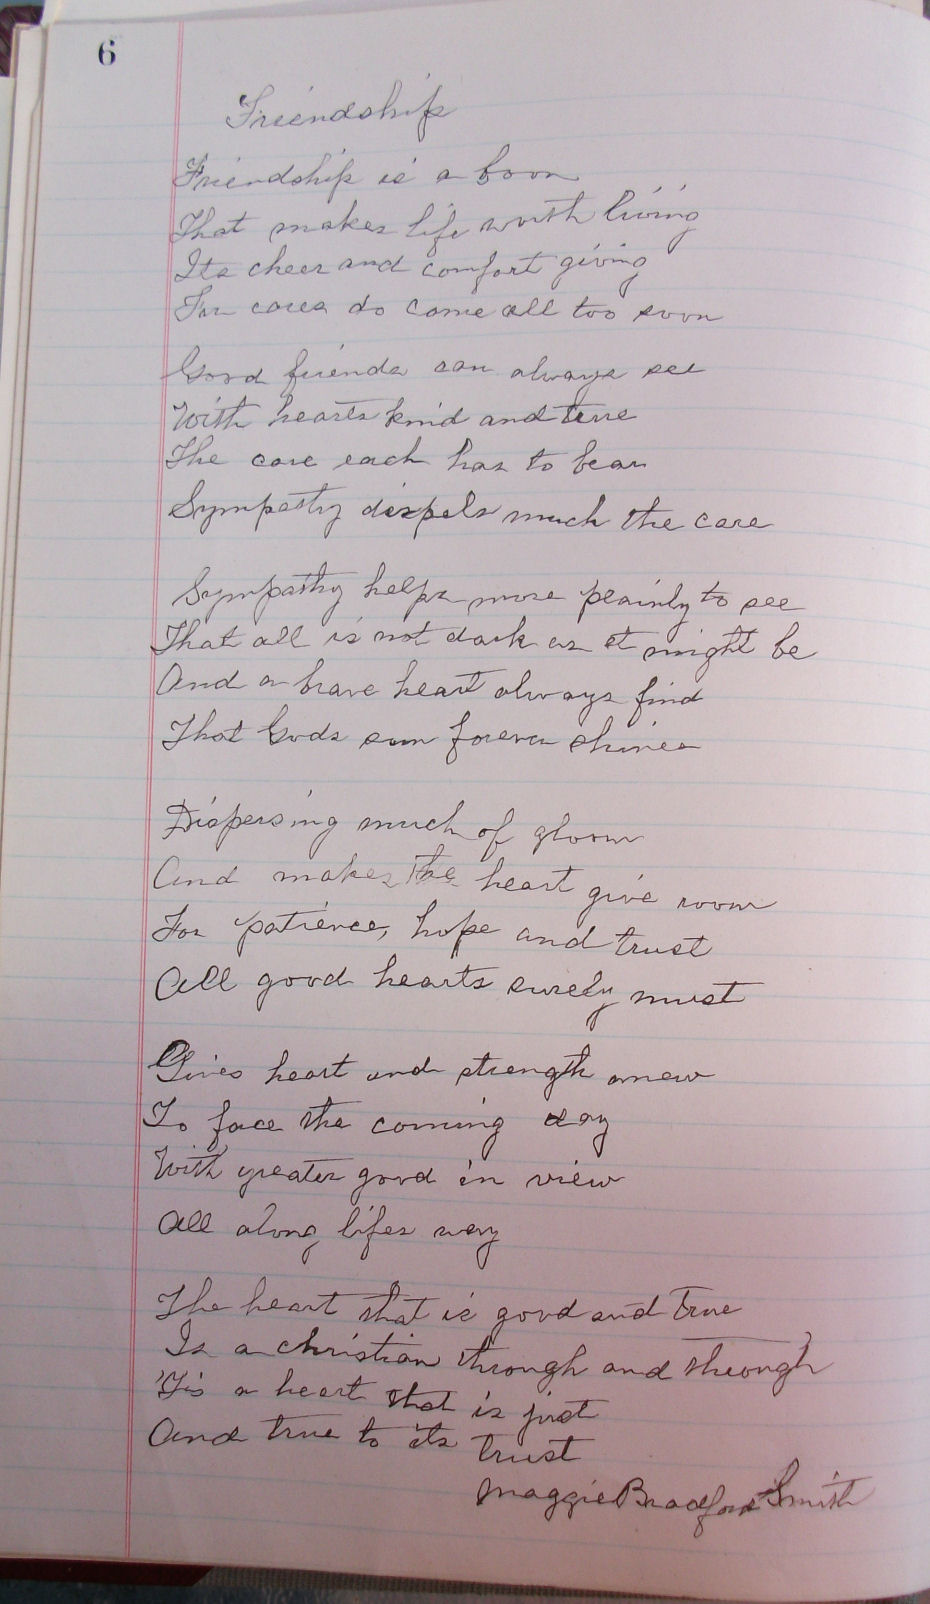 6
Friendship
Friendship is a boon
That makes life worth living
Its cheer and comfort giving
For cares do come all too soon
Good friends can always see
With hearts kind and true
The care each has to bear
Sympathy dispels much the care
Sympathy helps more plainly to see
That all is not dark as it might be
And a brave heart always find
That Gods sun forever shines
Dispersing much of gloom
And makes the heart give room
For patience, hope and trust
All good hearts surely must
Gives heart and strength anew
To face the coming day
With greater good in view
All along lifes way
The heart that is good and true
Is a christian through and through
'Tis a heart that is just
And true to its trust
Maggie Bradford Smith